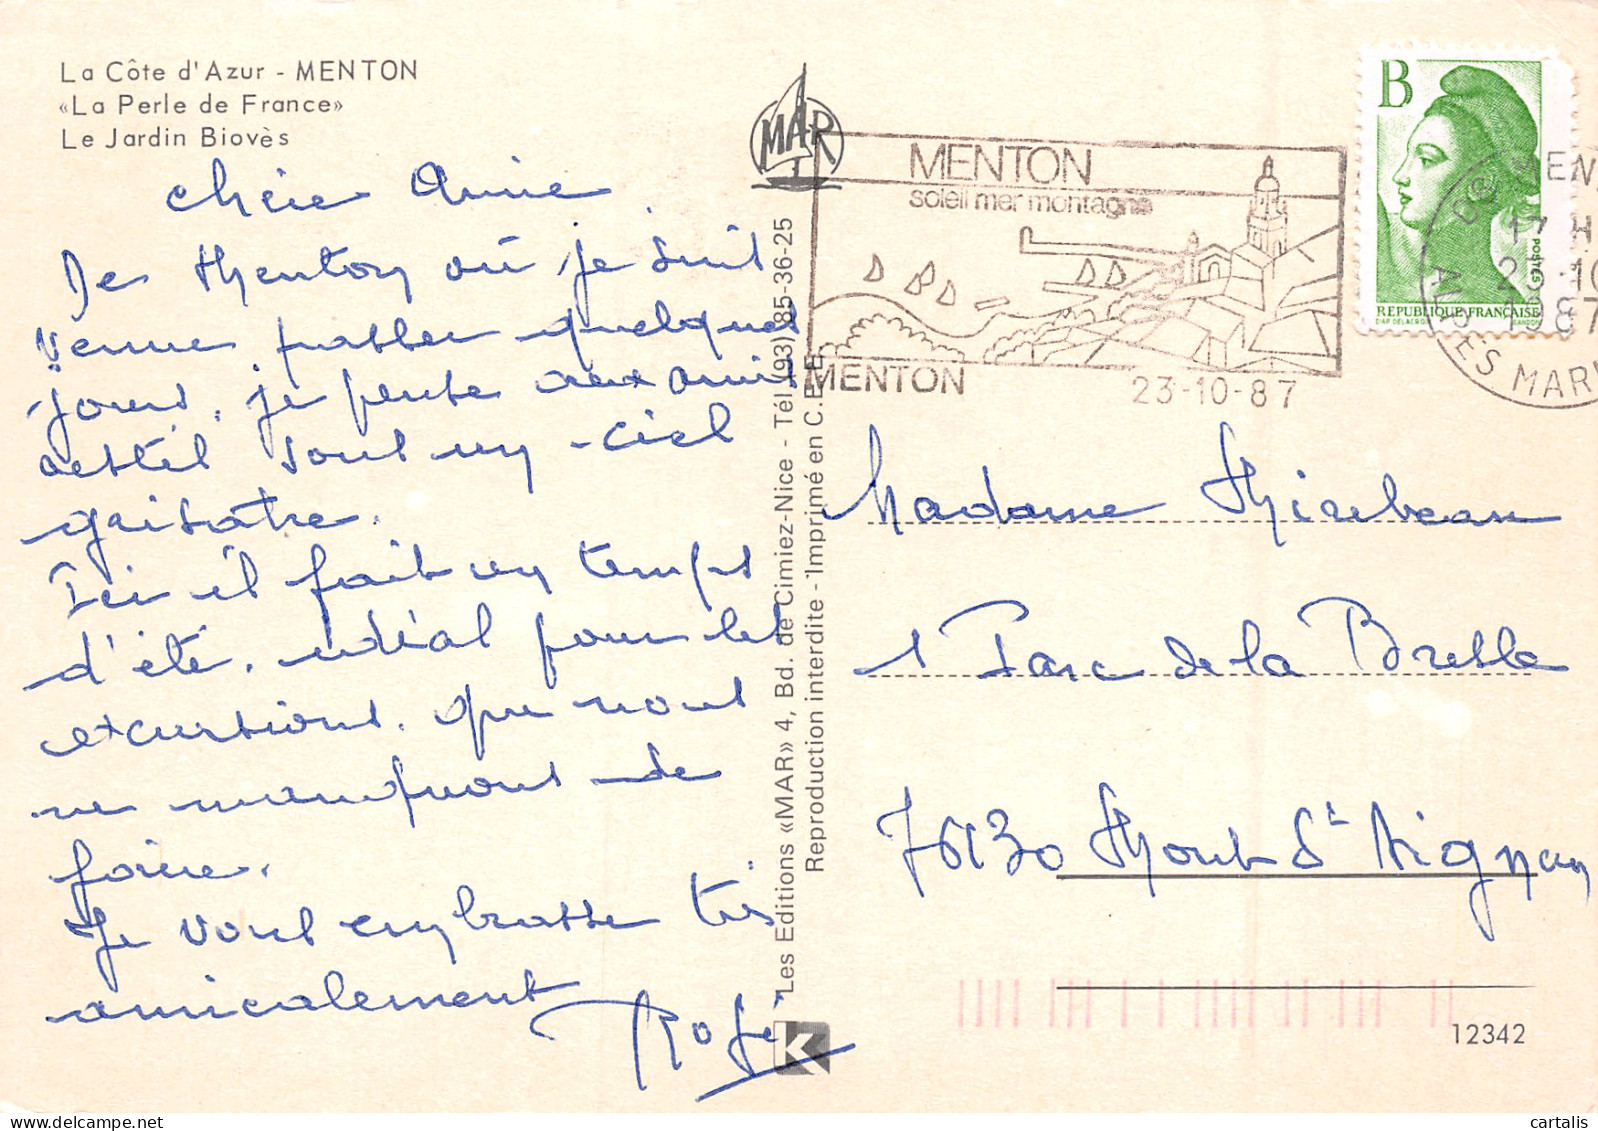 La Côte d'Azur - MENTON
«La Perle de France»
Le Jardin Biovès
chère Anne
De Menton où je suis
venue passer quelques
jours, je pense aux amis
restés sous un ciel
grisâtre.
Ici il fait un temps
d'été. idéal pour les
excursions. que nous
ne manquons de
faire.
Je vous embrasse très
amicalement
MAR
Les Editions «MAR» 4, Bd. de Cimiez-Nice - Tél. (93) 85-36-25
Reproduction interdite - Imprimé en C.E.E.
K
MENTON
soleil mer montagne
MENTON
23-10-87
B
POSTES
REPUBLIQUE FRANÇAISE
D'AP. DELACROIX
GANDON
17 H
1987
ALPES MAR
Madame Mirebeau
1 Parc de la Bresle
76130 Mont St Aignan
12342
cartalis